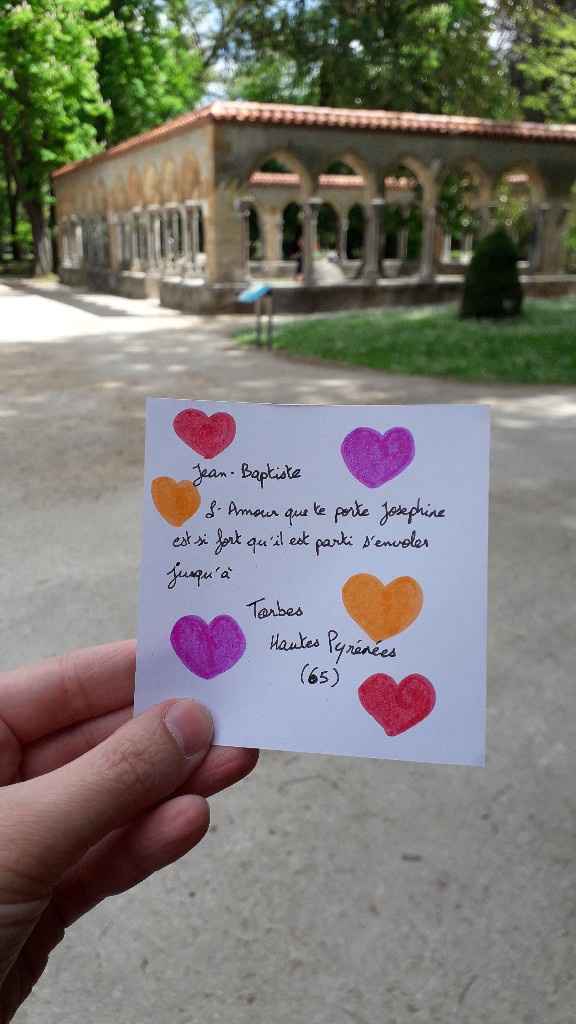 Jean-Baptiste
L'Amour que te porte Josephine
est si fort qu'il est parti s'envoler
jusqu'à
Tarbes
Hautes Pyrénées
(65)